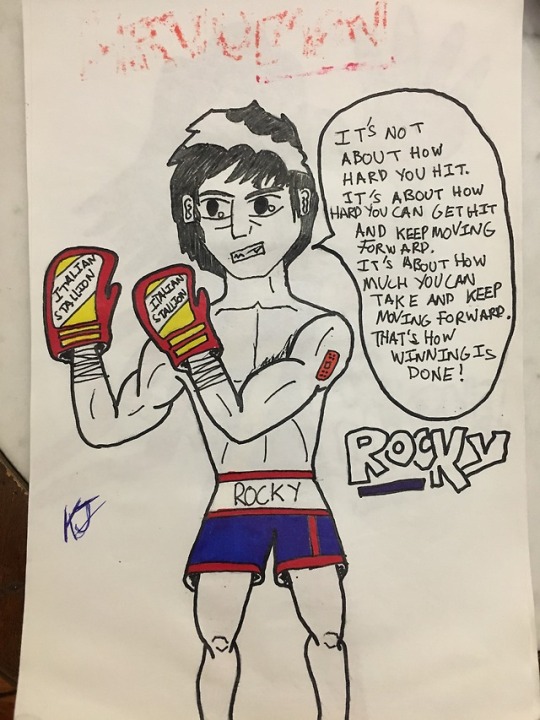 IT'S NOT
ABOUT HOW
HARD YOU HIT.
IT'S ABOUT HOW
HARD YOU CAN GET HIT
AND KEEP MOVING
FORWARD.
IT'S ABOUT HOW
MUCH YOU CAN
TAKE AND KEEP
MOVING FORWARD.
THAT'S HOW
WINNING IS
DONE!
ITALIAN
STALLION
ITALIAN
STALLION
ROCKY
ROCKY
KJ